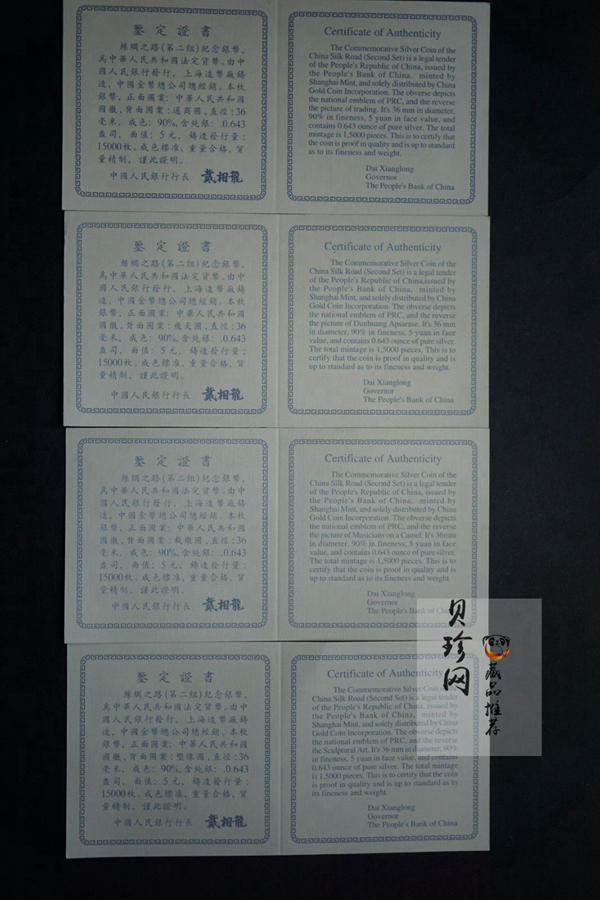 鑒定證書
絲綢之路(第二組)紀念銀幣,
為中華人民共和國法定貨幣,由中
國人民銀行發行,上海造幣廠鑄
造,中國金幣總公司總經銷,本枚
銀幣,正面圖案:中華人民共和國
國徽,背面圖案:通商圖,直徑:36
毫米,成色:90%,含純銀:.0.643
盎司,面值:5元,鑄造發行量:
15000枚,成色標准,重量合格,質
量精制,謹此證明。
中國人民銀行行長 戴相龍
Certificate of Authenticity
The Commemorative Silver Coin of the
China Silk Road (Second Set) is a legal tender
of the People's Republic of China, issued by
the People's Bank of China, minted by
Shanghai Mint, and solely distributed by China
Gold Coin Incorporation. The obverse depicts
the national emblem of PRC, and the reverse
the picture of trading. It's 36 mm in diameter,
90% in fineness, 5 yuan in face value, and
contains 0.643 ounce of pure silver. The total
mintage is 1,5000 pieces. This is to certify that
the coin is proof in quality and is up to standard
as to its fineness and weight.
Dai Xianglong
Governor
The People's Bank of China
鑒定證書
絲綢之路(第二組)紀念銀幣,
為中華人民共和國法定貨幣,由中
國人民銀行發行,上海造幣廠鑄
造,中國金幣總公司總經銷,本枚
銀幣,正面圖案:中華人民共和國
國徽,背面圖案:飛天圖,直徑:36
毫米,成色:90%,含純銀:.0.643
盎司,面值:5元,鑄造發行量:
15000枚,成色標准,重量合格,質
量精制,謹此證明。
中國人民銀行行長 戴相龍
Certificate of Authenticity
The Commemorative Silver Coin of the
China Silk Road (Second Set) is a legal tender
of the People's Republic of China,issued by
the People's Bank of China, minted by
Shanghai Mint, and solely distributed by China
Gold Coin Incorporation. The obverse depicts
the national emblem of PRC, and the reverse
the picture of Dunhuang Apsarase. It's 36 mm
in diameter, 90% in fineness, 5 yuan in face
value, and contains 0.643 ounce of pure silver.
The total mintage is 1,5000 pieces. This is to
certify that the coin is proof in quality and is
up to standard as to its fineness and weight.
Dai Xianglong
Governor
The People's Bank of China
鑒定證書
絲綢之路(第二組)紀念銀幣,
為中華人民共和國法定貨幣,由中
國人民銀行發行,上海造幣廠鑄
造,中國金幣總公司總經銷,本枚
銀幣,正面圖案:中華人民共和國
國徽,背面圖案:載樂圖,直徑:36
毫米,成色:90%,含純銀:.0.643
盎司,面值:5元,鑄造發行量:
15000枚,成色標准,重量合格,質
量精制,謹此證明。
中國人民銀行行長 戴相龍
Certificate of Authenticity
The Commemorative Silver Coin of the
China Silk Road (Second Set) is a legal tender
of the People's Republic of China, issued by
the People's Bank of China, minted by
Shanghai Mint, and solely distributed by China
Gold Coin Incorporation. The obverse depicts
the national emblem of PRC, and the reverse
the picture of Musicians on a Camel. It's 36mm
in diameter, 90% in fineness, 5 yuan in face
value, and contains 0.643 ounce of pure silver.
The total mintage is 1,5000 pieces. This is to
certify that the coin is proof in quality and is
up to standard as to its fineness and weight.
Dai Xianglong
Governor
The People's Bank of China
鑒定證書
絲綢之路(第二組)紀念銀幣,
為中華人民共和國法定貨幣,由中
國人民銀行發行,上海造幣廠鑄
造,中國金幣總公司總經銷,本枚
銀幣,正面圖案:中華人民共和國
國徽,背面圖案:塑像圖,直徑:36
毫米,成色:90%,含純銀:.0.643
盎司,面值:5元,鑄造發行量:
15000枚,成色標准,重量合格,質
量精制,謹此證明。
中國人民銀行行長 戴相龍
Certificate of Authenticity
The Commemorative Silver Coin of the
China Silk Road (Second Set) is a legal tender
of the People's Republic of China, issued by
the People's Bank of China, minted by
Shanghai Mint, and solely distributed by China
Gold Coin Incorporation. The obverse depicts
the national emblem of PRC, and the reverse
the Sculptural Art. It's 36 mm in diameter, 90%
in fineness, 5 yuan in face value, and contains
0.643 ounce of pure silver. The total mintage
is 1,5000 pieces. This is to certify that the coin
is proof in quality and is up to standard as to
its fineness and weight.
Dai Xianglong
Governor
The People's Bank of China
贝珍网
藏品推荐